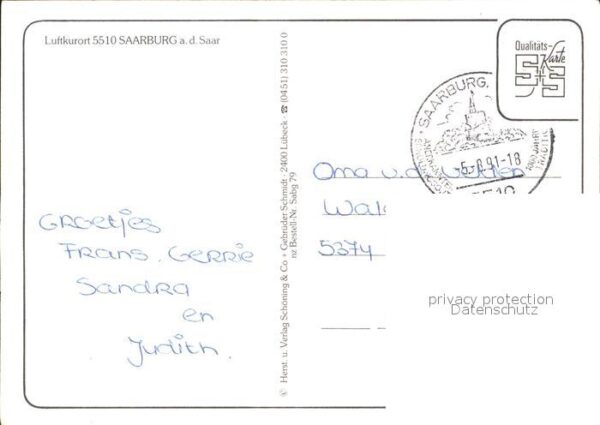 Luftkurort 5510 SAARBURG a. d. Saar
Groetjes
Frans. Gerrie
Sandra
en
Judith.
© Herst. u. Verlag Schöning & Co + Gebrüder Schmidt · 2400 Lübeck ☎ (0451) 310 310 0
nz Bestell-Nr. Sabg 79
Qualitäts-
Karte
SAARBURG,
-5.-8.91-18
Oma v.d.
5374
privacy protection
Datenschutz